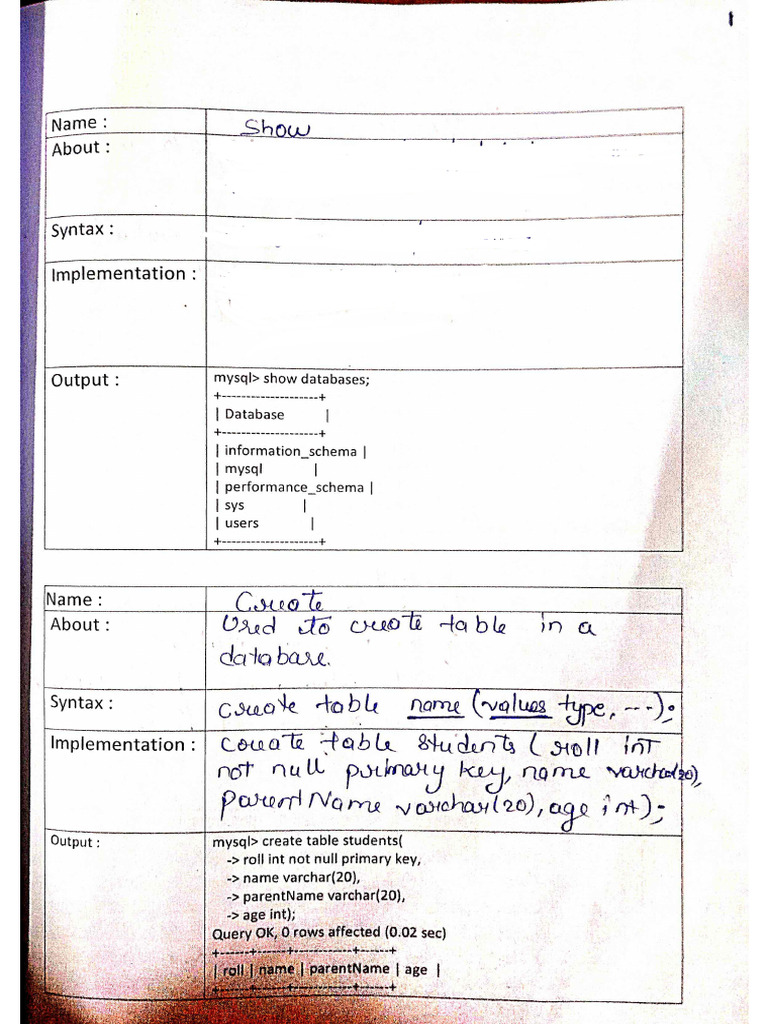 1
Name : Show
About :
Syntax :
Implementation :
Output : mysql> show databases;
+--------------------+
| Database |
+--------------------+
| information_schema |
| mysql |
| performance_schema |
| sys |
| users |
+--------------------+
Name : Create
About : Used to create table in a
database.
Syntax : create table name (values type, ---);
Implementation : create table students ( roll int
not null primary key, name varchar(20),
parentName varchar(20), age int);
Output : mysql> create table students(
-> roll int not null primary key,
-> name varchar(20),
-> parentName varchar(20),
-> age int);
Query OK, 0 rows affected (0.02 sec)
+------+------+------------+------+
| roll | name | parentName | age |
+------+------+------------+------+